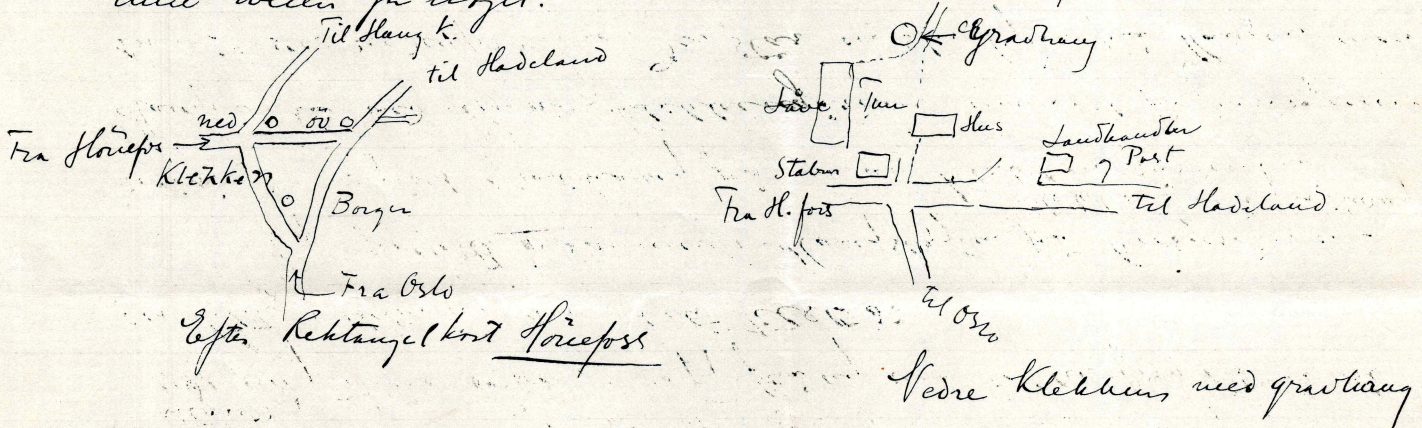 Til Haug k.
til Hadeland
ned öv
Fra Hönefos
Klekken
Borger
Fra Oslo
Efter Rektangelkart Hönefoss
Gravhaug
Låve Tun
Hus
Landhandler
Post
Stabur
Fra H.foss
Til Hadeland
til Oslo
Nedre Klekkens med gravhaug